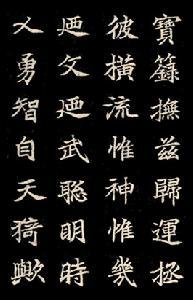 寶籙撫兹歸運極
彼橫流惟神惟幾
迺文迺武聡明時
乂勇智自天猗歟